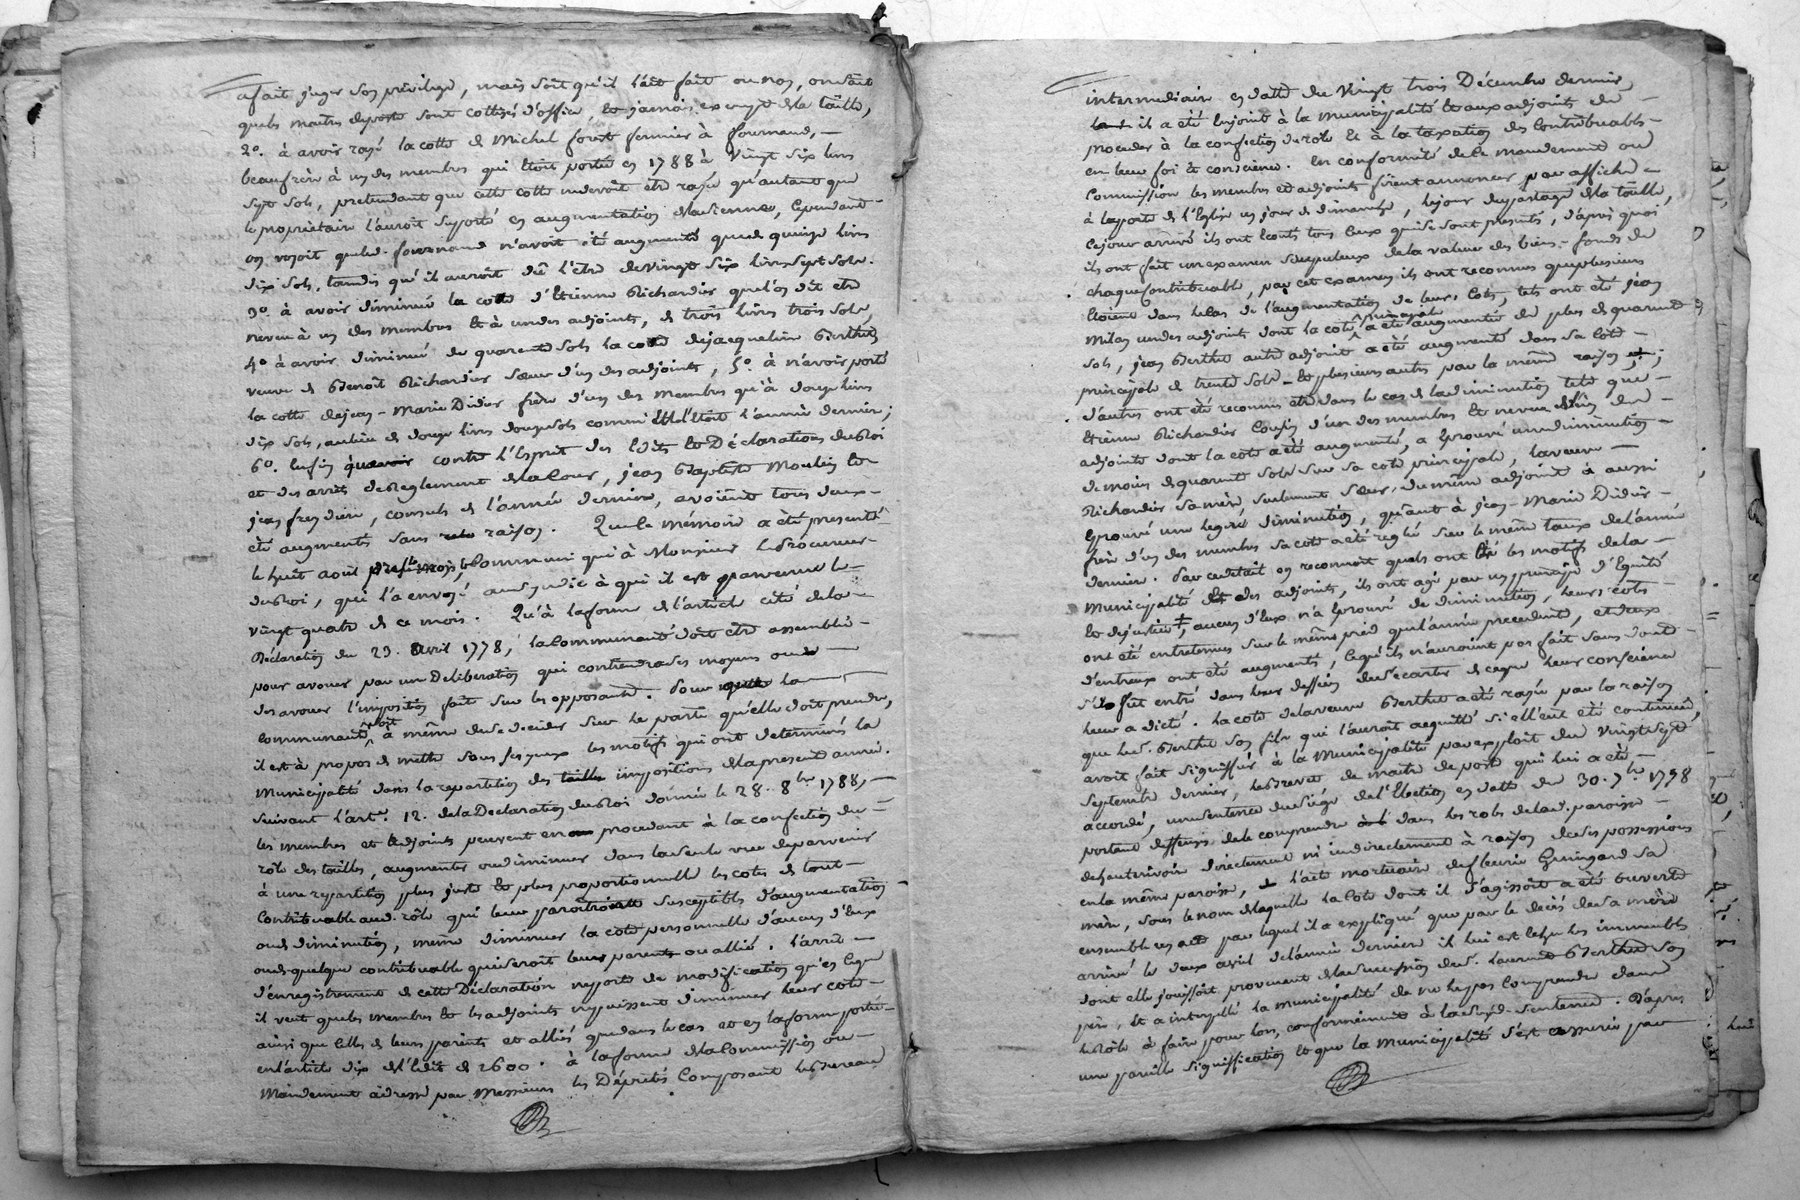 a fait juger son privilege, mais soit qu'il l'ait fait ou non, on sait
que les maitres de poste sont cottisés d'office, et jamais exempt de la taille,
2°. à avoir rayé la cotte de Michel forest fermier à fournand, —
beaufrère à un des membres qui étoit porté en 1788 à vingt six livres
sept sols, pretendant que cette cotte ne devoit être rayée qu'autant que
le proprietaire l'auroit suporté en augmentation de la sienne, cependant
on voyoit que led. fournand n'avoit été augmenté que de quinze livres
dix sols, tandis qu'il auroit dû l'être de vingt six livres sept sols.
3°. à avoir diminué la cotte d'Etienne Richardier que l'on dit être
neveu à un des membres et à un des adjoints, de trois livres trois sols,
4° à avoir diminué de quarente sols la cotte de jacqueline Berthet
veuve de Benoît Richardier sœur d'un des adjoints, 5°. à n'avoir porté
la cotte de jean-Marie Didier frère d'un des membres qu'à douze livres
dix sols, au lieu de douze livres douze sols comme elle l'étoit l'année derniere;
6°. enfin contre l'esprit des Edits et Déclarations du Roi
et des arrêts de Reglement de la Cour, jean Baptiste Moulin et
jean freydiere, consuls de l'année derniere, avoient tous deux —
été augmentés sans raison. Que le mémoire a été presenté
le huit aoust communiqué à Monsieur le Procureur
du Roi, qui l'a envoyé au syndic à qui il est parvenu le
vingt quatre de ce mois. Qu'à la forme de l'article cité de la
Déclaration du 23. avril 1778, la communauté doit être assemblée
pour avouer par une Deliberation qui contiendra ses moyens ou —
desavouer l'imposition faite sur les opposants. Pour la
communauté soit à même de se decider sur le parti qu'elle doit prendre,
il est à propos de mettre sous ses yeux les motifs qui ont determinés la
municipalité dans la repartition des impositions de la presente année.
suivant l'art. 12. de la Declaration du Roi donnée le 28. 8bre 1788, —
les membres et adjoints peuvent en procedant à la confection du
rôle des tailles, augmenter ou diminuer dans la seule vue de parvenir
à une repartition plus juste et plus proportionnelle les cotes de tout
contribuable aud. rôle qui leur paroîtroient susceptibles d'augmentation
ou de diminution, même diminuer la cote personnelle d'aucun d'eux
ou de quelque contribuable qui seroit leurs parents ou allié. l'arrêt —
d'enregistrement de cette Déclaration n'y porte de modification qu'en ce que
il veut que les membres et les adjoints n'y puissent diminuer leur cote
ainsi que celles de leurs parents et alliés que dans le cas et en la forme portée
en l'article dix de l'Edit de 1600. à la forme de la Commission ou —
Mandement adressé par Messieurs les Députés composant le Bureau
intermediaire en datte du vingt trois Décembre dernier
il a été enjoint à la municipalité et aux adjoints de —
proceder à la confection du role et à la taxation des contribuables
en leur foi et conscience. En conformité de ce mandement ou
Commission les membres et adjoints firent annoncer par affiche —
à la porte de l'Eglise un jour de dimanche, le jour du partage de la taille,
ce jour arrivé ils ont écouté tous ceux qui se sont presentés, d'après quoi
ils ont fait un examen scrupuleux de la valeur des biens-fonds de
chaque contribuable, par cet examen ils ont reconnus que plusieurs
étoient dans le cas de l'augmentation de leurs cotes, tels ont été jean
Milan un des adjoints dont la cote principale a été augmentée de plus de quarente
sols, jean Berthet autre adjoint a été augmenté dans sa cote —
principale de trente sols et plusieurs autres par la même raison;
d'autres ont été reconnus être dans le cas de la diminution tels que —
Etienne Richardier cousin d'un des membres et neveu d'un des
adjoints dont la cote a été augmenté, a éprouvé une diminution —
de moins de quarente sols sur sa cote principale, la veuve —
Richardier sa mère, seulement sœur du même adjoint a aussi
éprouvé une legere diminution, quant à jean-Marie Didier —
frère d'un des membres sa cote a été reglée sur le même taux de l'année
derniere. Par ce détail on reconnoit quels ont été les motifs de la —
municipalité et des adjoints, ils ont agi par un principe d'équité
et de justice, aucun d'eux n'a éprouvé de diminution, leurs cotes
ont été entretenues sur le même pied que l'année precedente, et deux
d'entreux ont été augmentés, ce qu'ils n'auroient pas fait sans doute
s'il fut entré dans leur dessein de s'écarter de ce que leur conscience
leur a dicté. la cote de la veuve Berthet a été rayée par la raison
que led. Berthet son fils qui l'auroit acquitté si elle eut été continuée,
avoit fait signiffier à la Municipalité par exploit du vingt sept
Septembre dernier, le Brevet de maitre de poste qui lui a été —
accordé, une sentence du siége de l'Election en datte du 30. 7bre 17
portant deffenses de le comprendre dans les roles de lad. paroisse —
directement ni indirectement à raison de ses possessions
en la même paroisse, l'acte mortuaire de fleurie Guingard sa
mère, sous le nom de laquelle la cote dont il s'agissoit a été ouverte
ensemble un acte par lequel il a expliqué que par le decès de sa mère
arrivé le deux avril de l'année derniere il lui est echu les immeubles
dont elle jouissoit provenant de la succession de s. Laurent Berthet son
père, et a interpellé la municipalité de ne le pas comprendre dans
le Rôle à faire pour lors, conformément à la susd. sentence. D'après
une pareille signiffication et que la municipalité s'est assurée par